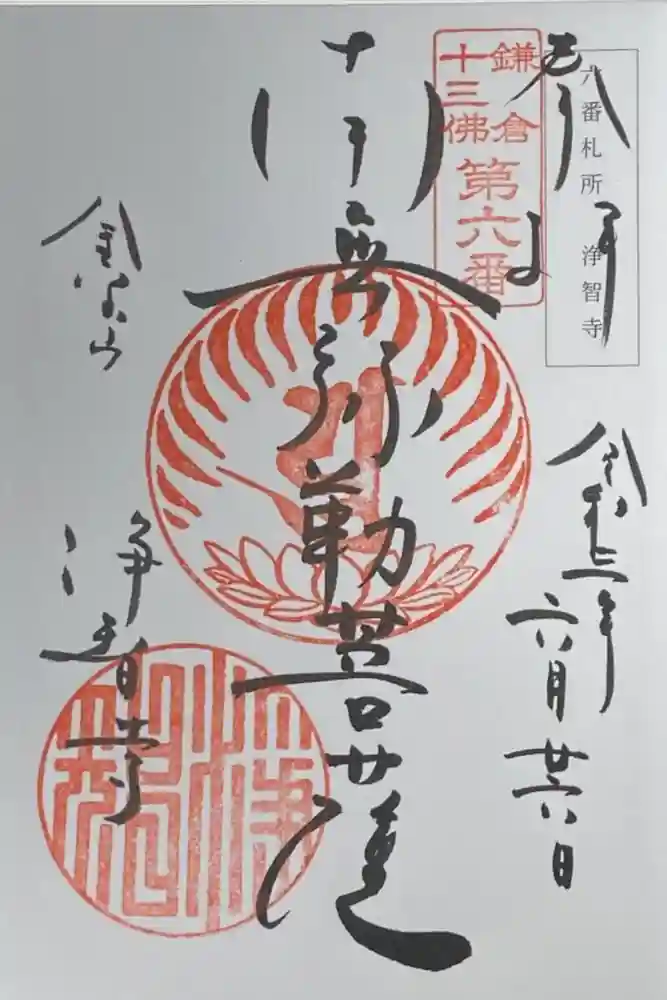 六番札所 浄智寺
奉拝
鎌倉
十三佛
第六番
令和三年六月廿六日
南無弥勒菩薩
金宝山
浄智寺